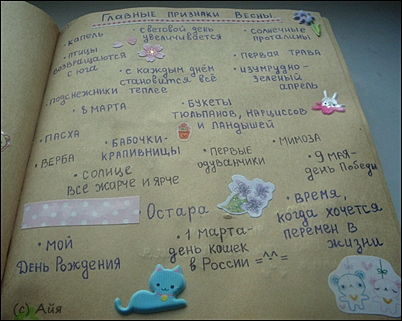 Главные признаки весны.
• капель
• световой день увеличивается
• солнечные проталины
• птицы возвращаются с юга
• с каждым днём становится всё теплее
• первая трава
• изумрудно-зеленый апрель
• подснежники
• 8 марта
• букеты тюльпанов, нарциссов и ландышей
• Пасха
• бабочки-крапивницы
• первые одуванчики
• мимоза
• верба
• солнце всё жарче и ярче
• 9 мая-день Победы
Остара
• время, когда хочется перемен в жизни
• мой День Рождения
• 1 марта-день кошек в России =^.^=
(c) Айя